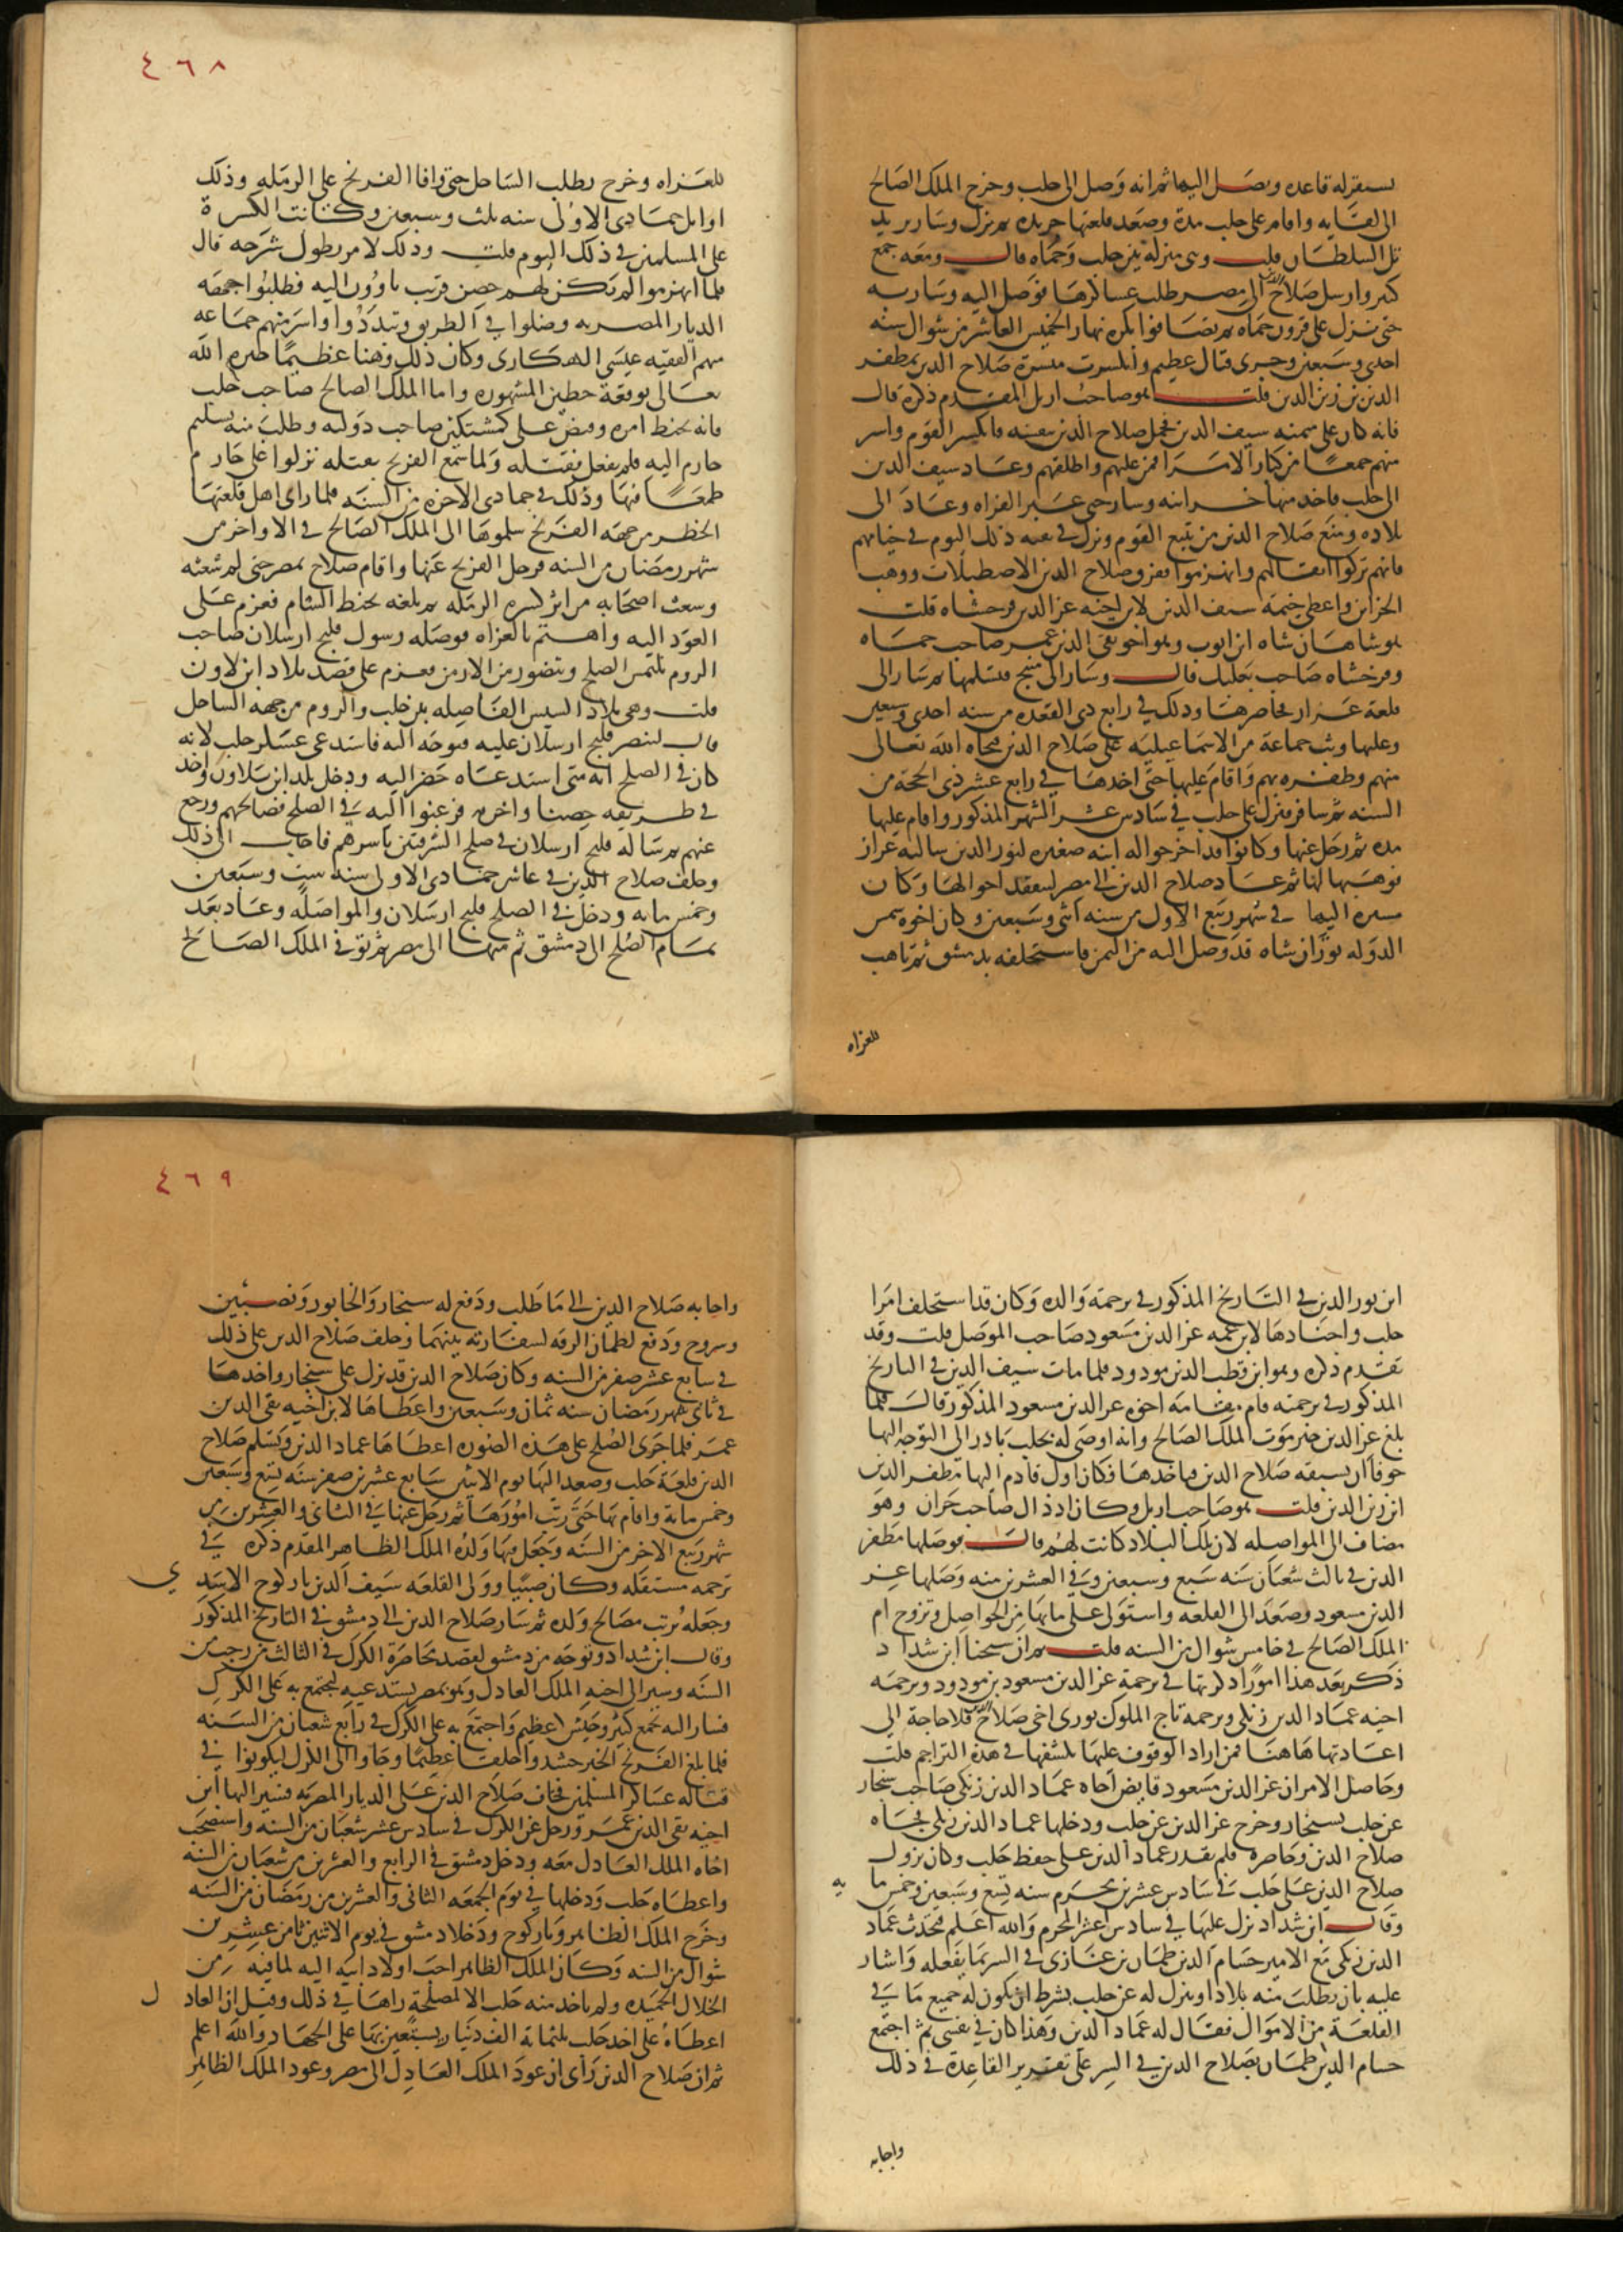 يستقر له قاعده ويصل اليها ثم انه وصل الى حلب وخرج الملك الصالح
الى لقايه واقام على حلب مدة وصعد قلعتها جريده ثم نزل وسار يريد
تل السلطان قلت وهى منزلة بين حلب وحماه قال ومعه جمع
كبير وارسل صلاح الدين الى مصر طلب عساكرها فوصل اليه وسار به
حتى نزل على قرون حماه ثم تصافوا بكره نهار الخميس العاشر من شوال سنه
احدى وسبعين وجرى قتال عظيم وانكسرت ميسرة صلاح الدين بمظفر
الدين بن زين الدين قلت هو صاحب اربل المقدم ذكره قال
فانه كان على ميمنه سيف الدين فحمل صلاح الدين بنفسه فانكسر القوم واسر
منهم جمعا من كبار الامرا فمن عليهم واطلقهم وعاد سيف الدين
الى حلب فاخذ منها خزانته وسار حتى عبر الفراه وعاد الى
بلاده ومنع صلاح الدين من تتبع القوم ونزل في بقيه ذلك اليوم في خيامهم
فانهم تركوا اثقالهم وانهزموا ففرق صلاح الدين الاصطبلات ووهب
الخزاين واعطى خيمة سيف الدين لابن اخيه عز الدين فرخشاه قلت
هو شاهان شاه ابن ايوب وهو اخو تقى الدين عمر صاحب حماه
وفرخشاه صاحب بعلبك قال وسار الى منبج فتسلمها ثم سار الى
قلعة عزاز يحاصرها وذلك في رابع ذى القعده من سنه احدى وسبعين
وعليها وثب جماعة من الاسماعيليه على صلاح الدين فنجاه الله تعالى
منهم وظفره بهم واقام عليها حتى اخذها في رابع عشر ذى الحجة من
السنه ثم سافر فنزل على حلب في سادس عشر الشهر المذكور واقام عليها
مده ثم رحل عنها وكانوا قد اخرجوا اله ابنه صغيره لنور الدين سالته عزاز
فوهبها لها ثم عاد صلاح الدين الى مصر ليتفقد احوالها وكان
مسيره اليها في شهر ربيع الاول من سنه اثنى وسبعين وكان اخوه شمس
الدوله توران شاه قد وصل اليه من اليمن فاستخلفه بدمشق ثم تاهب
للغزاه
٤٦٨
للغزاه وخرج يطلب الساحل حتى وافا الفرنج على الرمله وذلك
اوايل جمادى الاولى سنه ثلث وسبعين وكانت الكسرة
على المسلمين في ذلك اليوم قلت وذلك لامر يطول شرحه قال
فلما انهزموا لم تكن لهم حصن قريب ياوون اليه فطلبوا جهه
الديار المصريه وضلوا في الطريق وتبددوا واسر منهم جماعه
منهم الفقيه عيسى الهكارى وكان ذلك وهنا عظيما جبره الله
تعالى بوقعة حطين المشهوره واما الملك الصالح صاحب حلب
فانه تخبط امره وقبض على كمشتكين صاحب دولته وطلب منه تسليم
حارم اليه فلم يفعل فقتله ولما سمع الفرنج بقتله نزلوا على حارم
طمعا فيها وذلك في جمادى الاخره من السنه فلما راى اهل قلعتها
الخطر من جهه الفرنج سلموها الى الملك الصالح في الاواخر من
شهر رمضان من السنه فرحل الفرنج عنها واقام صلاح بمصر حتى لم شعثه
وشعث اصحابه من اثر كسره الرمله ثم بلغه تخبط الشام فعزم على
العود اليه واهتم بالغزاه فوصله رسول قليج ارسلان صاحب
الروم يلتمس الصلح ويتضور من الارمن فعزم على قصد بلاد ابن لاون
قلت وهى بلاد السيس الفاصله بين حلب والروم من جهه الساحل
قال لينصر قليج ارسلان عليه فتوجه اليه فاستدعى عسكر حلب لانه
كان في الصلح انه متى استدعاه حضر اليه ودخل بلد ابن سلاون واخذ
في طريقه حصنا واخربه فرغبوا اليه في الصلح فصالحهم ورجع
عنهم ثم ساله قليج ارسلان في صلح الشرقيين باسرهم فاجاب الى ذلك
وحلف صلاح الدين في عاشر جمادى الاولى سنه ست وسبعين
وخمس مايه ودخل في الصلح قليج ارسلان والمواصله وعاد بعد
تمام الصلح الى دمشق ثم منها الى مصر ثم توفى الملك الصالح
ابن نور الدين في التاريخ المذكور في ترجمة والده وكان قد استحلف امرا
حلب واجنادها لابن عمه عز الدين مسعود صاحب الموصل قلت وقد
تقدم ذكره وهو ابن قطب الدين مودود فلما مات سيف الدين في التاريخ
المذكور في ترجمته قام مقامه اخوه عز الدين مسعود المذكور قال فلما
بلغ عز الدين خبر موت الملك الصالح وانه اوصى له بحلب بادر الى التوجه اليها
خوفا ان يسبقه صلاح الدين فياخذها فكان اول قادم اليها مظفر الدين
ابن زين الدين قلت هو صاحب اربل وكان اذ ذال صاحب حران وهو
مضاف الى المواصله لان تلك البلاد كانت لهم قال فوصلها مظفر
الدين في ثالث شعبان سنه سبع وسبعين وفي العشرين منه وصلها عز
الدين مسعود وصعد الى القلعه واستولى على ما بها من الحواصل وتزوج ام
الملك الصالح في خامس شوال من السنه قلت ثم ان شيخنا ابن شداد
ذكر بعد هذا امورا ذكرتها في ترجمة عز الدين مسعود بن مودود وترجمه
اخيه عماد الدين زنكى وترجمه تاج الملوك بورى اخى صلاح الدين فلا حاجة الى
اعادتها هاهنا فمن اراد الوقوف عليها يكشفها في هذه التراجم قلت
وحاصل الامر ان عز الدين مسعود قايض اخاه عماد الدين زنكى صاحب سنجار
عن حلب بسنجار وخرج عز الدين عن حلب ودخلها عماد الدين زنكى فجاه
صلاح الدين وحاصره فلم يقدر عماد الدين على حفظ حلب وكان نزول
صلاح الدين على حلب في سادس عشرين محرم سنه تسع وسبعين وخمس ما يه
وقال ابن شداد نزل عليها في سادس عشر المحرم والله اعلم فتحدث عماد
الدين زنكى مع الامير حسام الدين طمان بن غازى في السر بما يفعله واشار
عليه بان يطلب منه بلادا وينزل له عن حلب بشرط ان يكون له جميع ما في
القلعة من الاموال فقال له عماد الدين وهذا كان في نفسى ثم اجتمع
حسام الدين طمان بصلاح الدين في السر على تقرير القاعدة في ذلك
واجابه
٤٦٩
واجابه صلاح الدين الى ما طلب ودفع له سنجار والخابور ونصيبين
وسروج ودفع لطمان الرقه لسفارته بينهما وحلف صلاح الدين على ذلك
في سابع عشر صفر من السنه وكان صلاح الدين قد نزل على سنجار واخدها
في ثانى شهر رمضان سنه ثمان وسبعين واعطاها لابن اخيه تقى الدين
عمر فلما جرى الصلح على هذه الصوره اعطاها عماد الدين وتسلم صلاح
الدين قلعة حلب وصعد اليها يوم الاثنين سابع عشرين صفر سنه تسع وسبعين
وخمس مائة واقام بها حتى رتب امورها ثم رحل عنها في الثانى والعشرين من
شهر ربيع الاخر من السنه وجعل فيها ولده الملك الظاهر المقدم ذكره في
ترجمه مستقله وكان صبيا وولى القلعه سيف الدين ياركوح الاسد ى
وجعله يرتب مصالح ولده ثم سار صلاح الدين الى دمشق في التاريخ المذكور
وقال ابن شداد وتوجه من دمشق لقصد محاصرة الكرك في الثالث من رجب من
السنه وسير الى اخيه الملك العادل وهو بمصر يستدعيه ليجتمع به على الكرك
فسار اليه بجمع كثير وجيش عظيم واجتمع به على الكرك في رابع شعبان من السنه
فلما بلغ الفرنج الخبر حشدوا خلقا عظيما وجاوا الى الكرك ليكونوا في
قتاله عساكر المسلمين فخاف صلاح الدين على الديار المصريه فسير اليها ابن
اخيه تقى الدين عمر ورحل عن الكرك في سادس عشر شعبان من السنه واستصحب
اخاه الملك العادل معه ودخل دمشق في الرابع والعشرين من شعبان من السنه
واعطاه حلب ودخلها في يوم الجمعه الثانى والعشرين من رمضان من السنه
وخرج الملك الظاهر وياركوح ودخلا دمشق في يوم الاثنين ثامن عشرين
شوال من السنه وكان الملك الظاهر احب اولاد ابيه اليه لما فيه من
الخلال الحميده ولم ياخذ منه حلب الا لمصلحة راها في ذلك وقيل ان العاد ل
اعطاه على اخد حلب ثلثماية الف دينار يستعين بها على الجهاد والله اعلم
ثم ان صلاح الدين راى ان عود الملك العادل الى مصر وعود الملك الظاهر